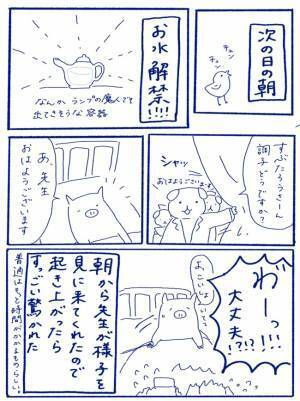 次の日の朝
チュン
チュン
お水解禁!!!!
なんか ランプの魔人でも
出てきそうな容器
すぶたろうさーん
調子どうですか?
シャッ
おはようございまーす
あ、先生
おはようございます
わーっ!!!
大丈夫!?!?
朝から先生が様子を
見に来てくれたので
起き上がったら
すっごい驚かれた
普通はもっと時間がかかるものらしい。